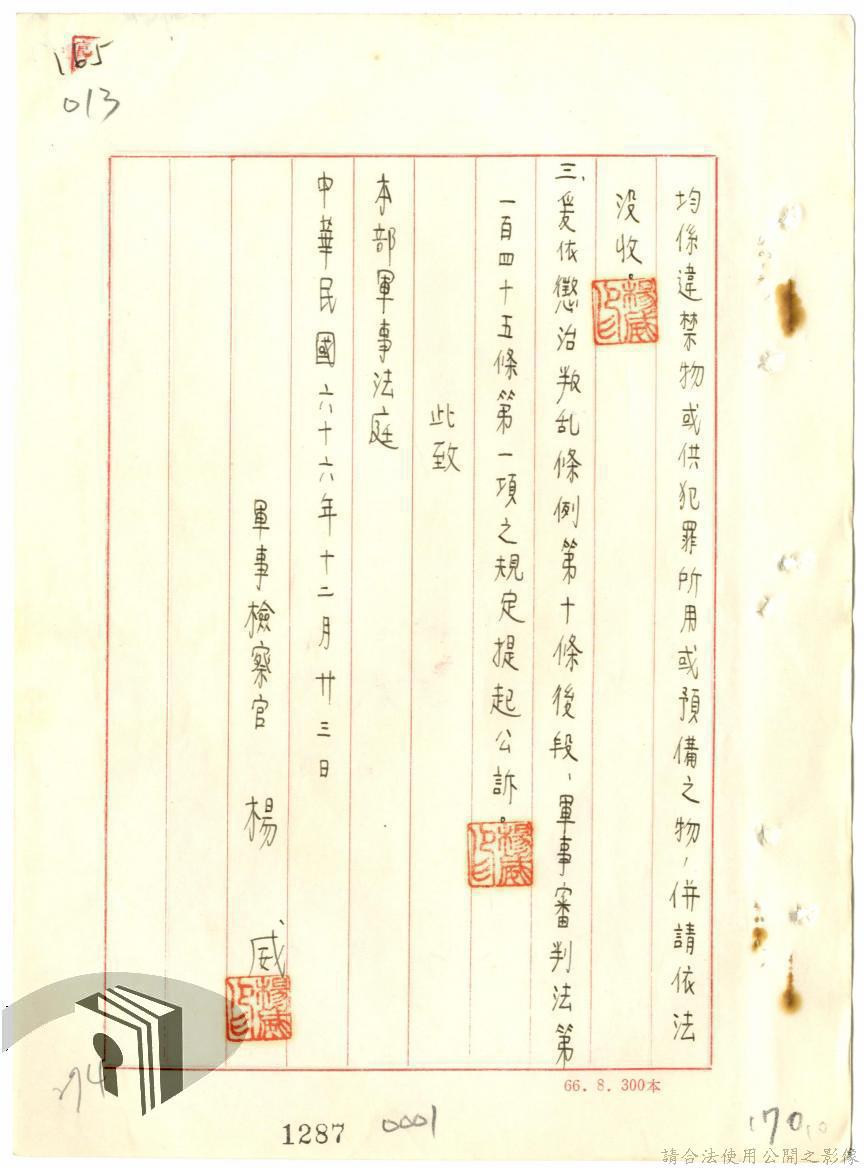 165
013
均係違禁物或供犯罪所用或預備之物，併請依法
沒收。
楊威印
三、爰依懲治叛乱條例第十條後段、軍事審判法第
一百四十五條第一項之規定提起公訴。
楊威印
此致
本部軍事法庭
中華民國六十六年十二月廿三日
軍事檢察官 楊 威
楊威印
66. 8. 300本
294
1287
0001
170
請合法使用公開之影像